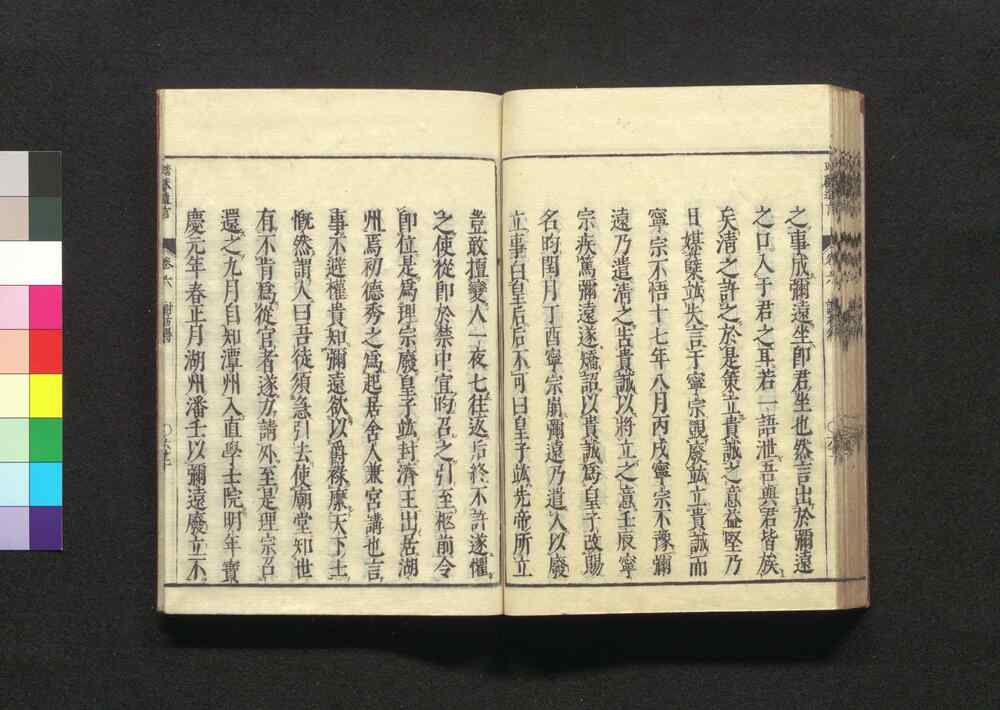 之事成彌遠坐即君坐也然言出於彌遠
之口入于君之耳若一語泄吾與君皆族
矣淸之許之於是策立貴誠之意益堅乃
日媒糵竑失言于寧宗覬廢竑立貴誠而
寧宗不悟十七年八月丙戌寧宗不豫彌
遠乃遣淸之告貴誠以將立之意壬辰寧
宗疾篤彌遠遂矯詔以貴誠爲皇子改賜
名昀閏月丁酉寧宗崩彌遠乃遣人以廢
立事白皇后后不可曰皇子竑先帝所立
豈敢擅變人一夜七往返后終不許遂懼
之使從即於禁中宣昀召之引至柩前令
即位是爲理宗廢皇子竑封濟王出居湖
州焉初德秀之爲起居舍人兼宮講也言
事不避權貴知彌遠欲以爵祿縻天下士
慨然謂人曰吾徒須急引去使廟堂知世
有不肯爲從官者遂力請外至是理宗召
還之九月自知潭州入直學士院明年寶
慶元年春正月湖州潘壬以彌遠廢立不
遺言
卷六
謝枋得